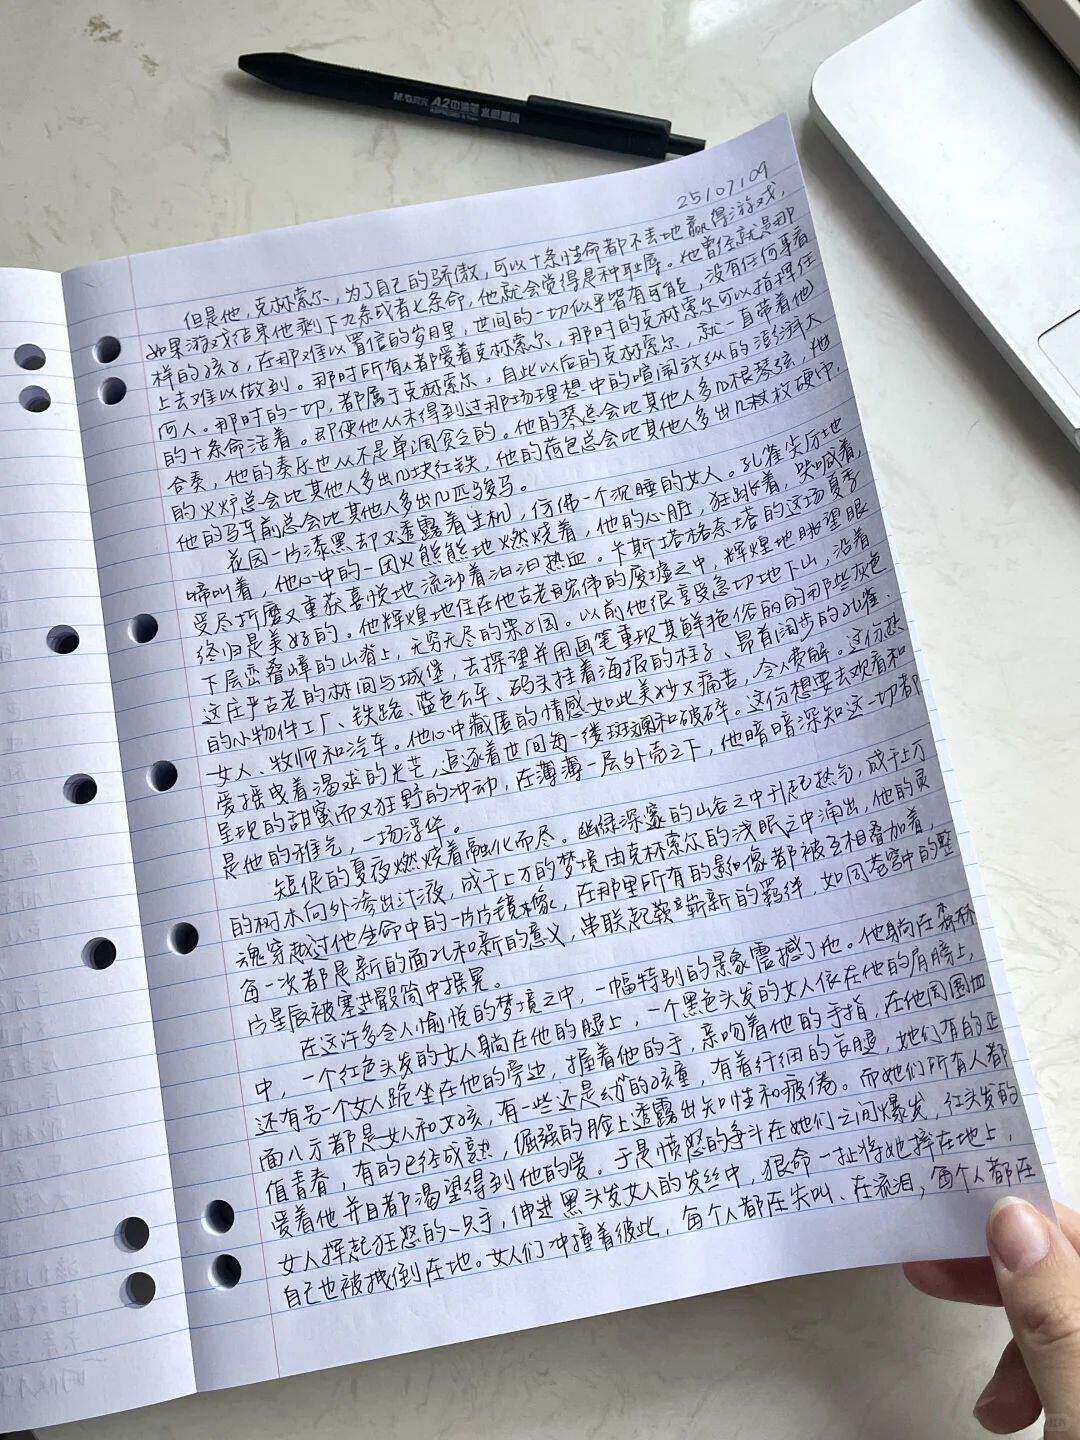 A2中油笔
25107109
但是他，克林索尔，为了自己的骄傲，可以十条性命都不丢地赢得游戏，
如果游戏结束他剩下九条或者七条命，他就会觉得是种耻辱。他曾经就是那
样的孩子，在那难以置信的岁月里，世间的一切似乎皆有可能，没有任何事看
上去难以做到。那时所有人都爱着克林索尔，那时的克林索尔可以指挥任
何人。那时的一切，都属于克林索尔。自此以后的克林索尔，就一直带着他
的十条命活着。即便他从未得到过那场理想中的喧闹放纵的澎湃大
合奏，他的奏乐也从不是单调贫乏的。他的琴总会比其他人多几根琴弦，他
的火炉总会比其他人多出几块红铁，他的荷包总会比其他人多出几枚枚硬币，
他的马车前总会比其他人多出几匹骏马。
花园一片漆黑却又透露着生机，仿佛一个沉睡的女人。孔雀尖厉地
啼叫着，他心中的一团火熊熊地燃烧着，他的心脏，狂跳着，哭喊着，
受尽折磨又重获喜悦地流动着汩汩热血。卡斯塔格奈塔的这场夏季
终归是美好的。他辉煌地住在他古老宏伟的废墟之中，辉煌地眺望眼
下层峦叠嶂的山脊上，无穷无尽的栗子园。以前他很享受急切地下山，沿着
这庄严古老的林间与城堡，去探望并用画笔重现其鲜艳俗丽的那些灰色
的小物件工厂、铁路、蓝色公车、码头挂着海报的柱子、昂首阔步的孔雀、
女人、牧师和汽车。他心中藏匿的情感如此美妙又痛苦，令人费解。这份热
爱摇曳着渴求的光芒，追逐着世间每一缕斑斓和破碎。这份想要去观看和
呈现的甜蜜而又狂野的冲动，在薄薄一层外壳之下，他暗暗深知这一切都
是他的稚气，一场浮华。
短促的夏夜燃烧着融化而尽。幽绿深邃的山谷之中升起热气，成千上万
的树木向外渗出汁液，成千上万的梦境由克林索尔的浅眠之中涌出，他的灵
魂穿越过他生命中的一片片镜像，在那里所有的影像都被互相叠加着，
每一次都是新的面孔和新的意义，串联起崭新的羁绊，如同苍穹中的整
片星辰被塞进骰筒中摇晃。
在这许多令人愉悦的梦境之中，一幅特别的景象震撼了他。他躺在森林
中，一个红色头发的女人躺在他的腿上，一个黑色头发的女人依在他的肩膀上，
还有另一个女人跪坐在他的旁边，握着他的手，亲吻着他的手指，在他周围四
面八方都是女人和女孩，有一些还是幼的孩童，有着纤细的长腿，她们有的正
值青春，有的已经成熟，倔强的脸上透露出知性和疲倦。而她们所有人都
爱着他并且都渴望得到他的爱。于是愤怒的争斗在她们之间爆发，红头发的
女人挥起狂怒的一只手，伸进黑头发女人的发丝中，狠命一扯将她摔在地上，
自己也被拽倒在地。女人们冲撞着彼此，每个人都在尖叫、在流泪，每个人都在